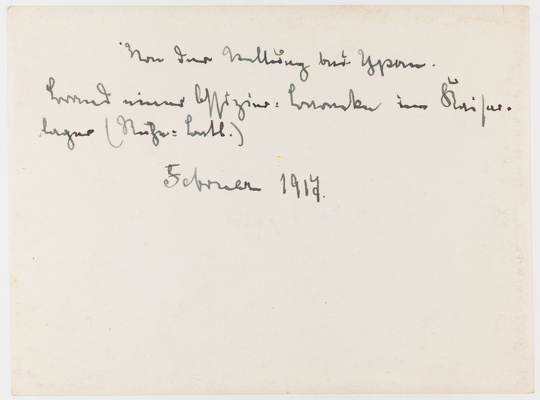 Von der Stellung bei Ypern.
Brand einer Offizier=Baracke im Kaiser-
lager (Ruhe=Batl.)
Februar 1917.